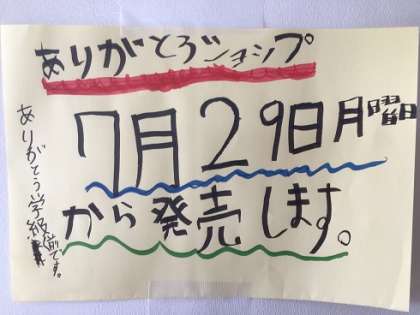 ありがとうショップ
7月29日月曜日
から発売します。
ありがとう学級前です。